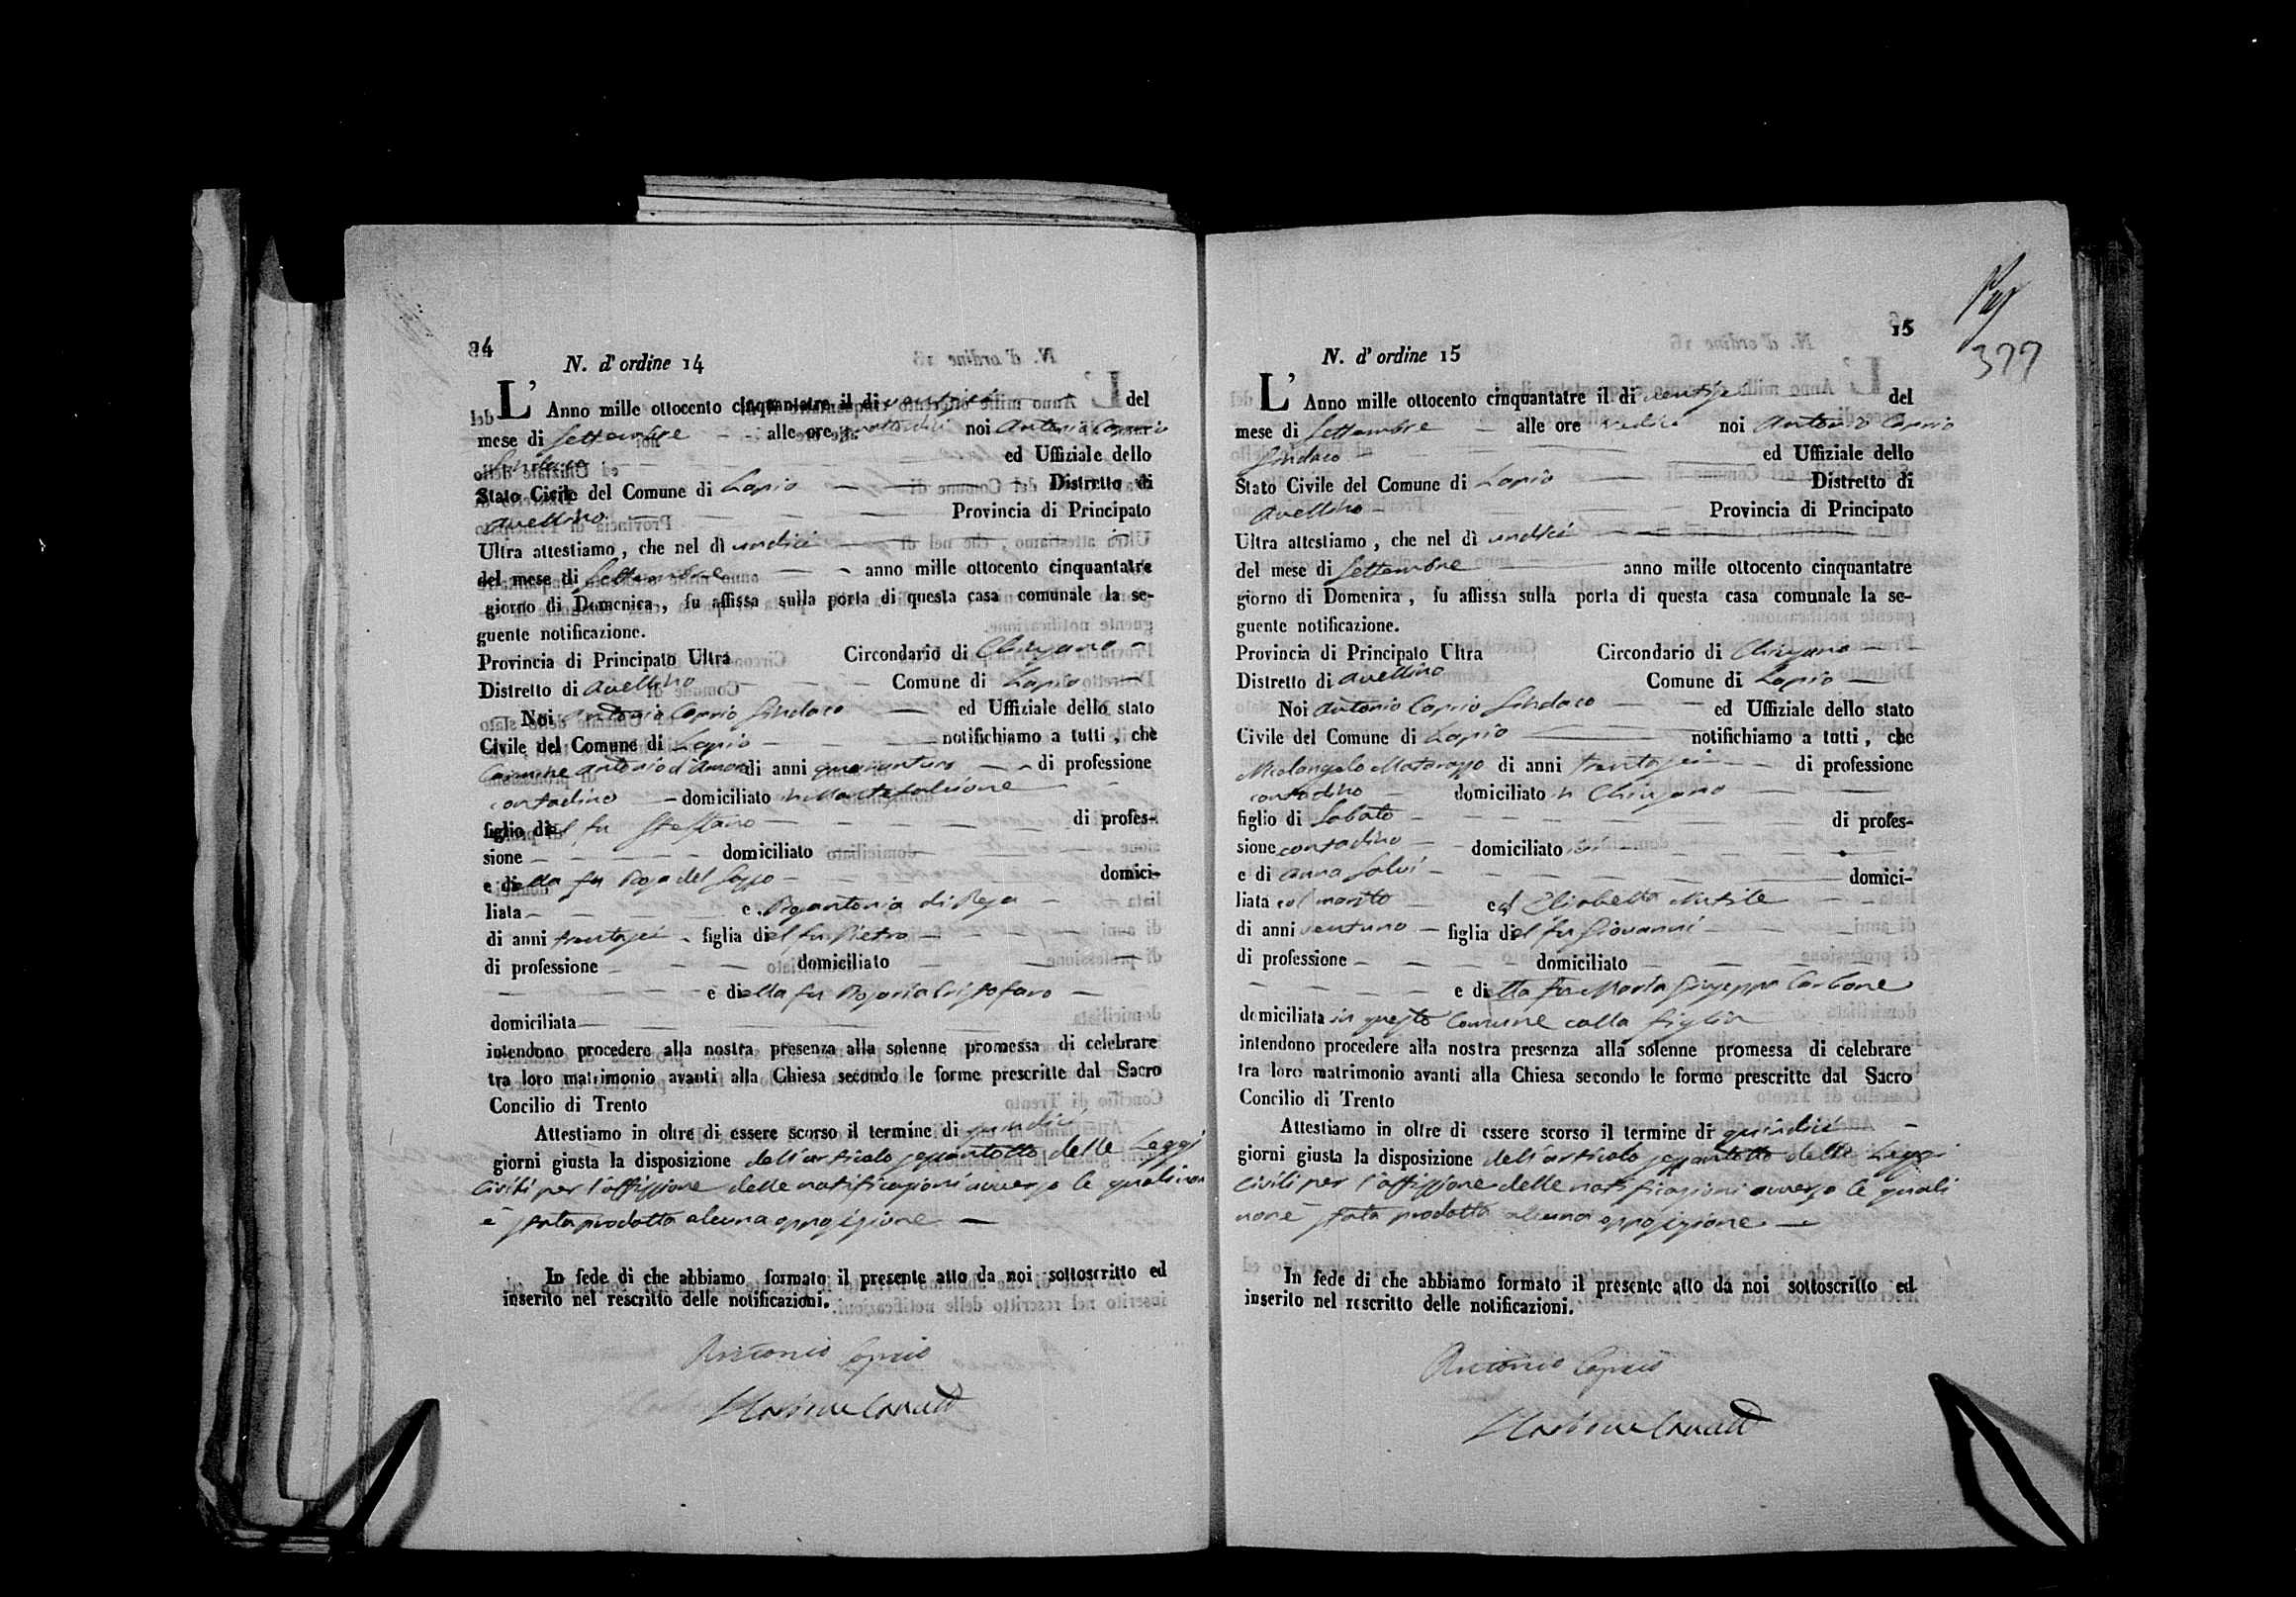 14
N. d' ordine 14
L' Anno mille ottocento cinquantatre il di del
mese di Settembre alle ore noi Antonio Caprio
Sindaco ed Uffiziale dello
Stato Civile del Comune di Lapio Distretto di
Avellino Provincia di Principato
Ultra attestiamo, che nel dì undici
del mese di Settembre anno mille ottocento cinquantatre
giorno di Domenica, fu affissa sulla porta di questa casa comunale la se-
guente notificazione.
Provincia di Principato Ultra Circondario di Chiusano
Distretto di Avellino Comune di Lapio
Noi Antonio Caprio Sindaco ed Uffiziale dello stato
Civile del Comune di Lapio notifichiamo a tutti, che
Carmine Antonio d'Amore di anni quarantuno di professione
contadino domiciliato in Montefalcione
figlio del fu Steffano di profes-
sione domiciliato
e della fu Rosa del domici-
liata e Rosantonia di
di anni trentasei figlia del fu Pietro
di professione domiciliato
e della fu Rosaria Cristofaro
domiciliata
intendono procedere alla nostra presenza alla solenne promessa di celebrare
tra loro matrimonio avanti alla Chiesa secondo le forme prescritte dal Sacro
Concilio di Trento
Attestiamo in oltre di essere scorso il termine di quindici
giorni giusta la disposizione dell'articolo sessantotto delle Leggi
Civili per l'affissione delle notificazioni avverso le quali non
è stata prodotta alcuna opposizione
In fede di che abbiamo formato il presente atto da noi sottoscritto ed
inserito nel rescritto delle notificazioni.
Antonio Caprio
15
377
N. d' ordine 15
L' Anno mille ottocento cinquantatre il di ventisei del
mese di Settembre alle ore noi Antonio Caprio
Sindaco ed Uffiziale dello
Stato Civile del Comune di Lapio Distretto di
Avellino Provincia di Principato
Ultra attestiamo, che nel dì undici
del mese di Settembre anno mille ottocento cinquantatre
giorno di Domenica, fu affissa sulla porta di questa casa comunale la se-
guente notificazione.
Provincia di Principato Ultra Circondario di Chiusano
Distretto di Avellino Comune di Lapio
Noi Antonio Caprio Sindaco ed Uffiziale dello stato
Civile del Comune di Lapio notifichiamo a tutti, che
Michelangelo Matarazzo di anni trentasei di professione
contadino domiciliato in Chiusano
figlio di Sabato di profes-
sione contadino domiciliato ivi
e di Anna Salvi domici-
liata col marito ed Elisabetta
di anni ventuno figlia del fu Giovanni
di professione domiciliato
e della fu Maria Giuseppa Carbone
domiciliata in questo Comune colla figlia
intendono procedere alla nostra presenza alla solenne promessa di celebrare
tra loro matrimonio avanti alla Chiesa secondo le forme prescritte dal Sacro
Concilio di Trento
Attestiamo in oltre di essere scorso il termine di quindici
giorni giusta la disposizione dell'articolo sessantotto delle Leggi
Civili per l'affissione delle notificazioni avverso le quali
non è stata prodotta alcuna opposizione
In fede di che abbiamo formato il presente atto da noi sottoscritto ed
inserito nel rescritto delle notificazioni.
Antonio Caprio